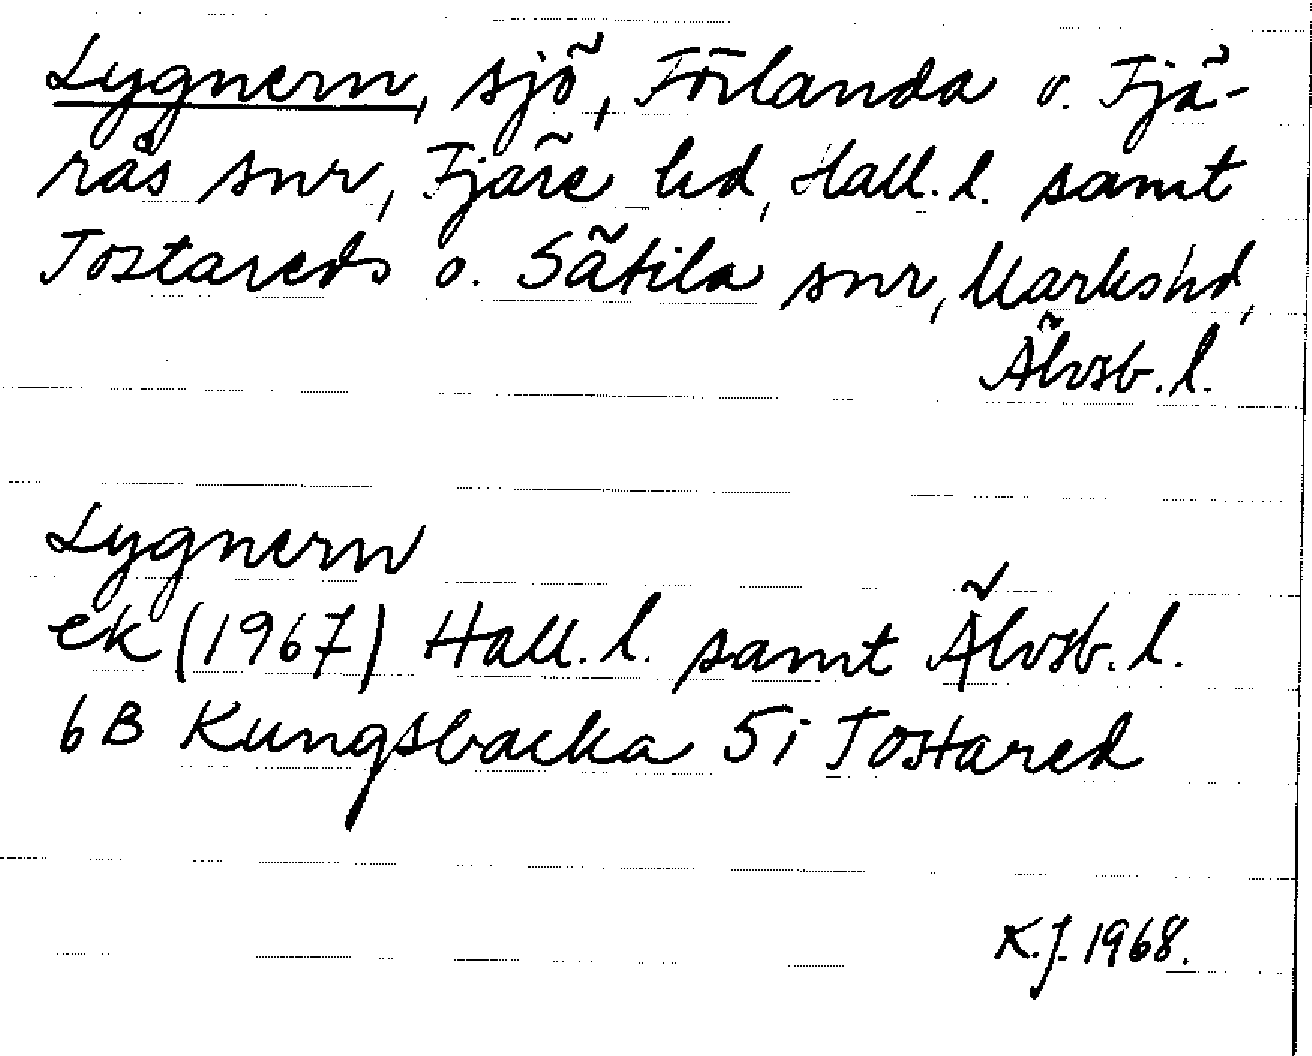 Lygnern, sjö, Förlanda o. Fjä-
rås snr, Fjäre hd, Hall. l. samt
Tostareds o. Sätila snr, Marks hd,
Älvsb. l.
Lygnern
ek (1967) Hall. l. samt Älvsb. l.
6B Kungsbacka 5i Tostared
K.J. 1968.